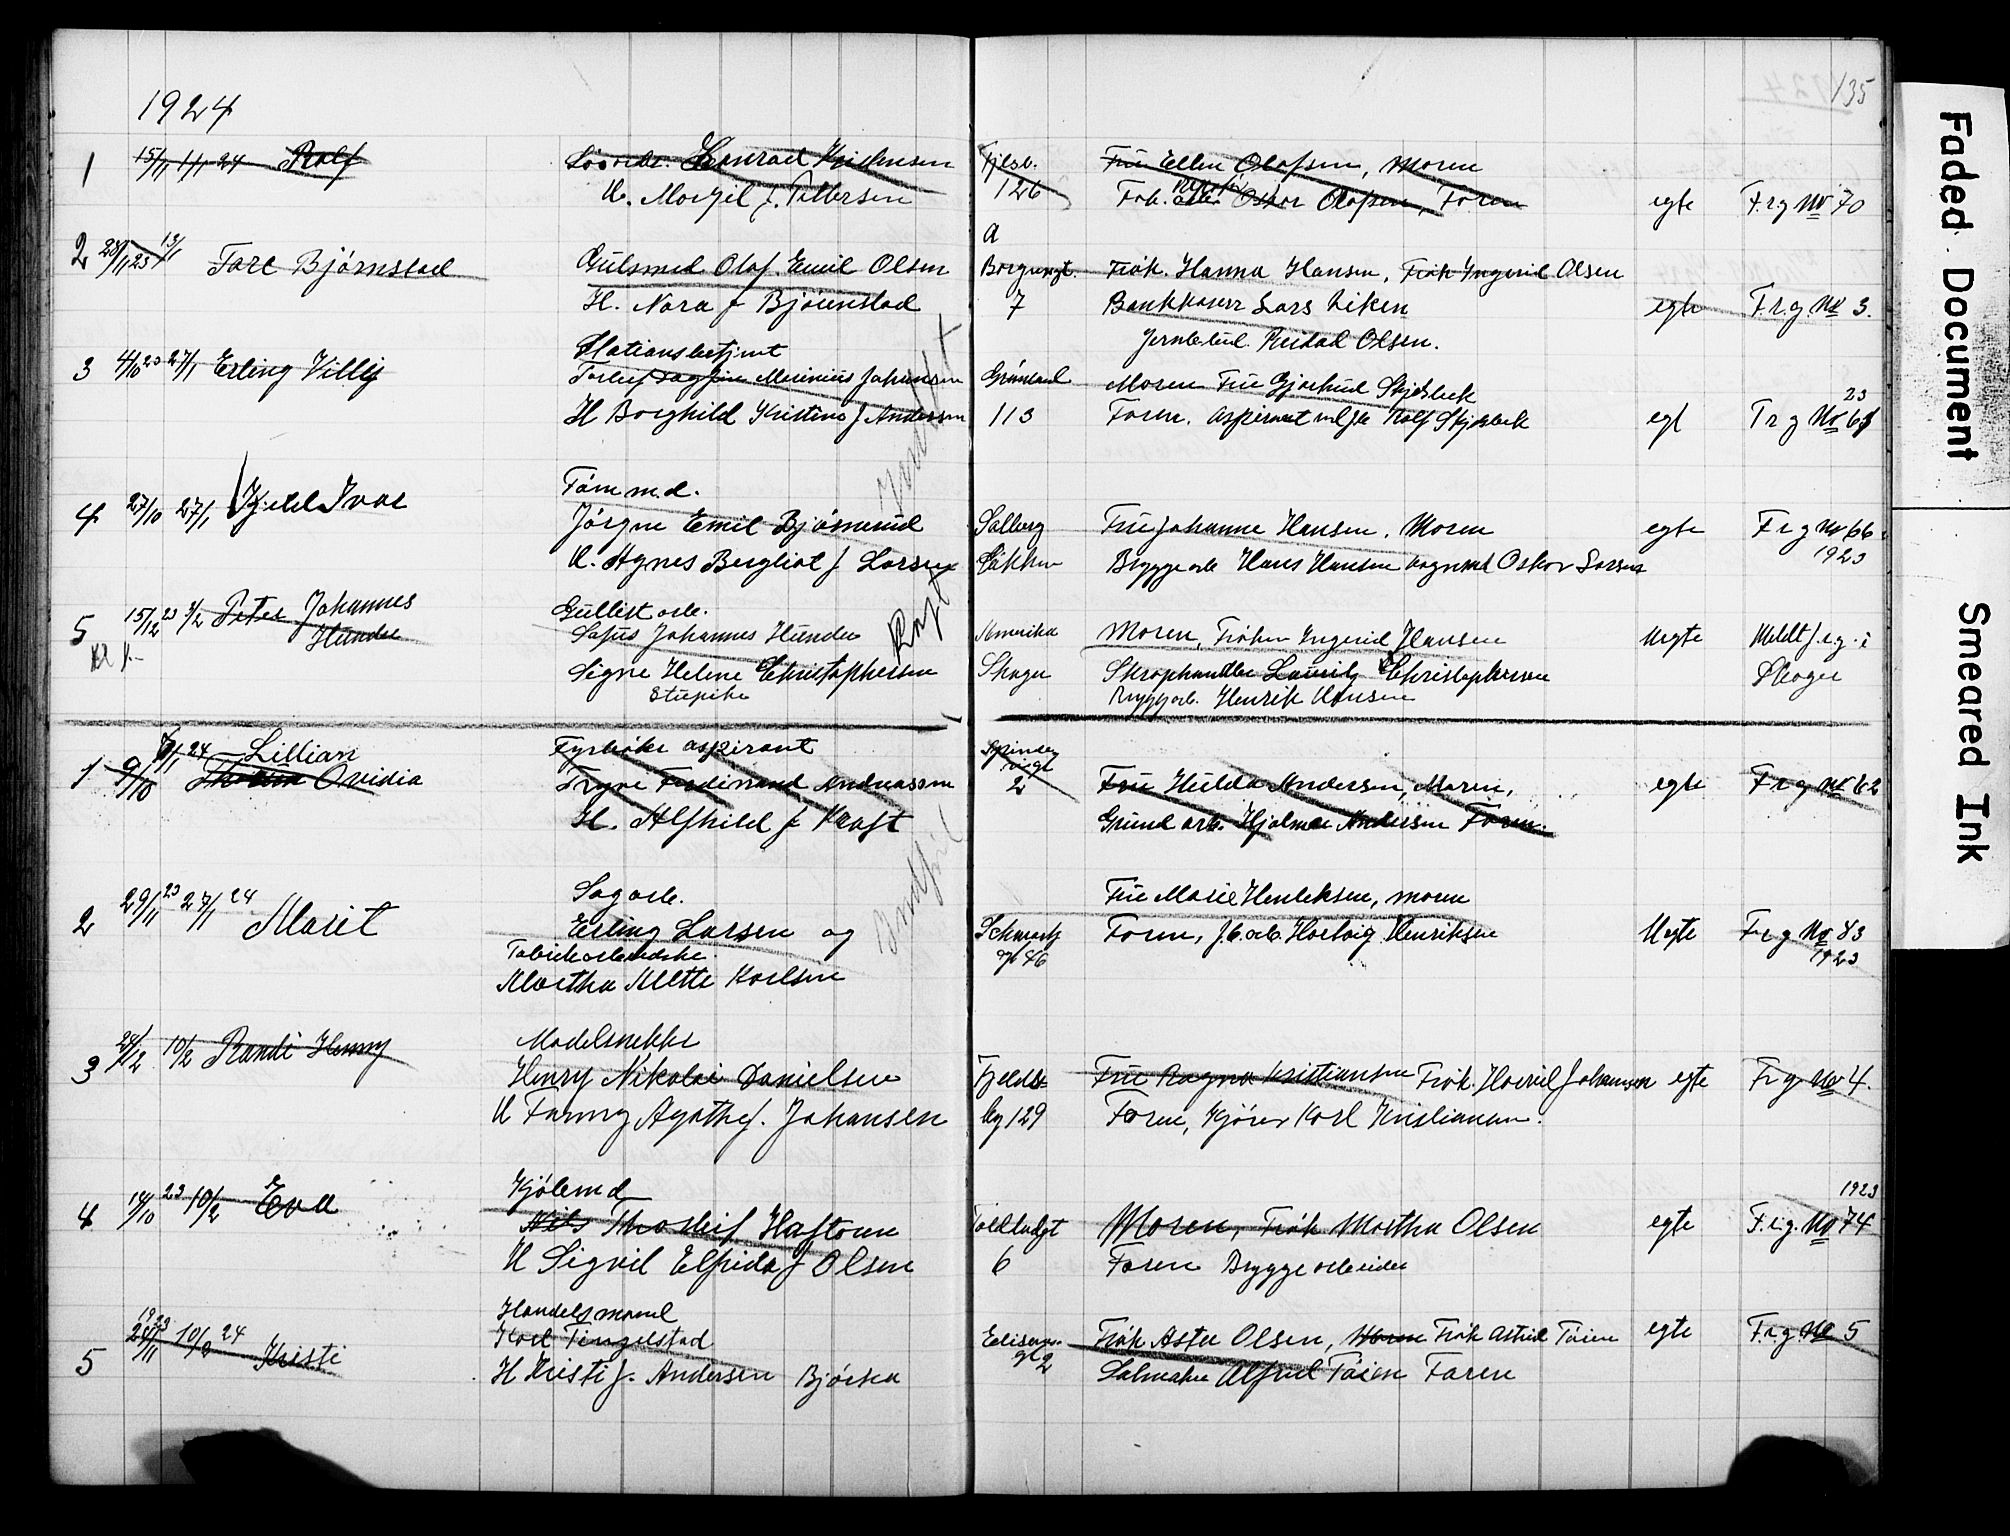 1924
135
1 15/11 1/1 24 Rolf
Konrad Kristensen
H. Margit f. Pettersen
Fjelsb. 126
Fru Ellen Olafsen, Moren
Fab. arb. Oskar Olafsen, Faren
egte F.r.g No 70
2 28/11 23 13/1 Tore Bjørnstad
Gulsmed Olaf Emil Olsen
H. Nora f Bjørnstad
Borgergt. 7
Frøk. Hanna Hansen, Frøk Ingerid Olsen
Bankkaserr Lars Liken
Jernbetud. Reidad Olsen.
egte F.r.g. No 3.
3 4/10 23 27/1 Erling Villy
Stationsbetjent
Marinius Johansen
H Borghild Kristine f Andersen
Grønland 113
Moren Fru Gjertrud Skjelbek
Faren. Aspirant Rolf Skjelbek
egt F r g No 61
23
4 27/10 27/1 Kjell Ivar
Tømmd.
Jørgen Emil Bjømerud
H. Agnes Bergliot f Larsen
Solberg
Løkken
Fru Johanne Hansen. Moren
Bryggearb Hans Hansen vognmd Oskar Larsen
egte F r g No 66
1923
5 15/12 23 3/2 Peter Johannes
Hunder
Kl f.-
Gullist arb.
Johannes Hunder
Signe Helene Christophersen
Stupike
Amerika
Skager
Moren, Frøken Ingerid Hansen
Skraphandler Lauritz Christophersen
Bryggarb. Henrik Hansen
Uegte Meldt f.r.g. i
Skager
1 9/10 6/1 24 Lillian
Ovidia
Fyrbøter aspirant
Trygve Ferdinand Andreassen
H. Alfhild f Kraft
Spinderigt 2
Fru Hulda Andersen, Moren,
Grund arb. Hjalmar Andersen Faren.
egte F r g No 62
2 29/11 23 27/1 24 Marit
Sagarb.
Erling Larsen og
Fabrikarbeiderske.
Martha Mette Karlsen
Schwartz
gt 46
Fru Marie Henriksen, moren
Faren, J.b.arb. Hartvig Henriksen
Uegte F r g No 83
1923
3 28/12 10/2 Randi Henny
Modelsnekker
Henry Nikolai Danielsen
H Fanny Agathe f. Johansen
Fjelds
bg 129
Fru Ragna Kristiansen Frøk. Haarild Johansen
Faren, Kjører Karl Kristiansen.
egte F r g No 4.
4 14/10 23 10/2 Eva
Kjølemd
Nils Thorleif Haftorn
H Sigrid Elfrida f Olsen
Toldbodgt
6
Moren, Frøk Martha Olsen
Faren Bryggearbeider
egte F.r.g. No 74
1923
5 1923
24/11 10/2 24 Kristi
Handelsmand
Karl Tingelstad
H Kristi f. Andersen Bjørka
Edison
gt 2
Frøk Asta Olsen, Moren Frøk Astrid Tøien
Alfred Tøien Faren
egte F.r.g. No 5
Faded Document
Smeared Ink